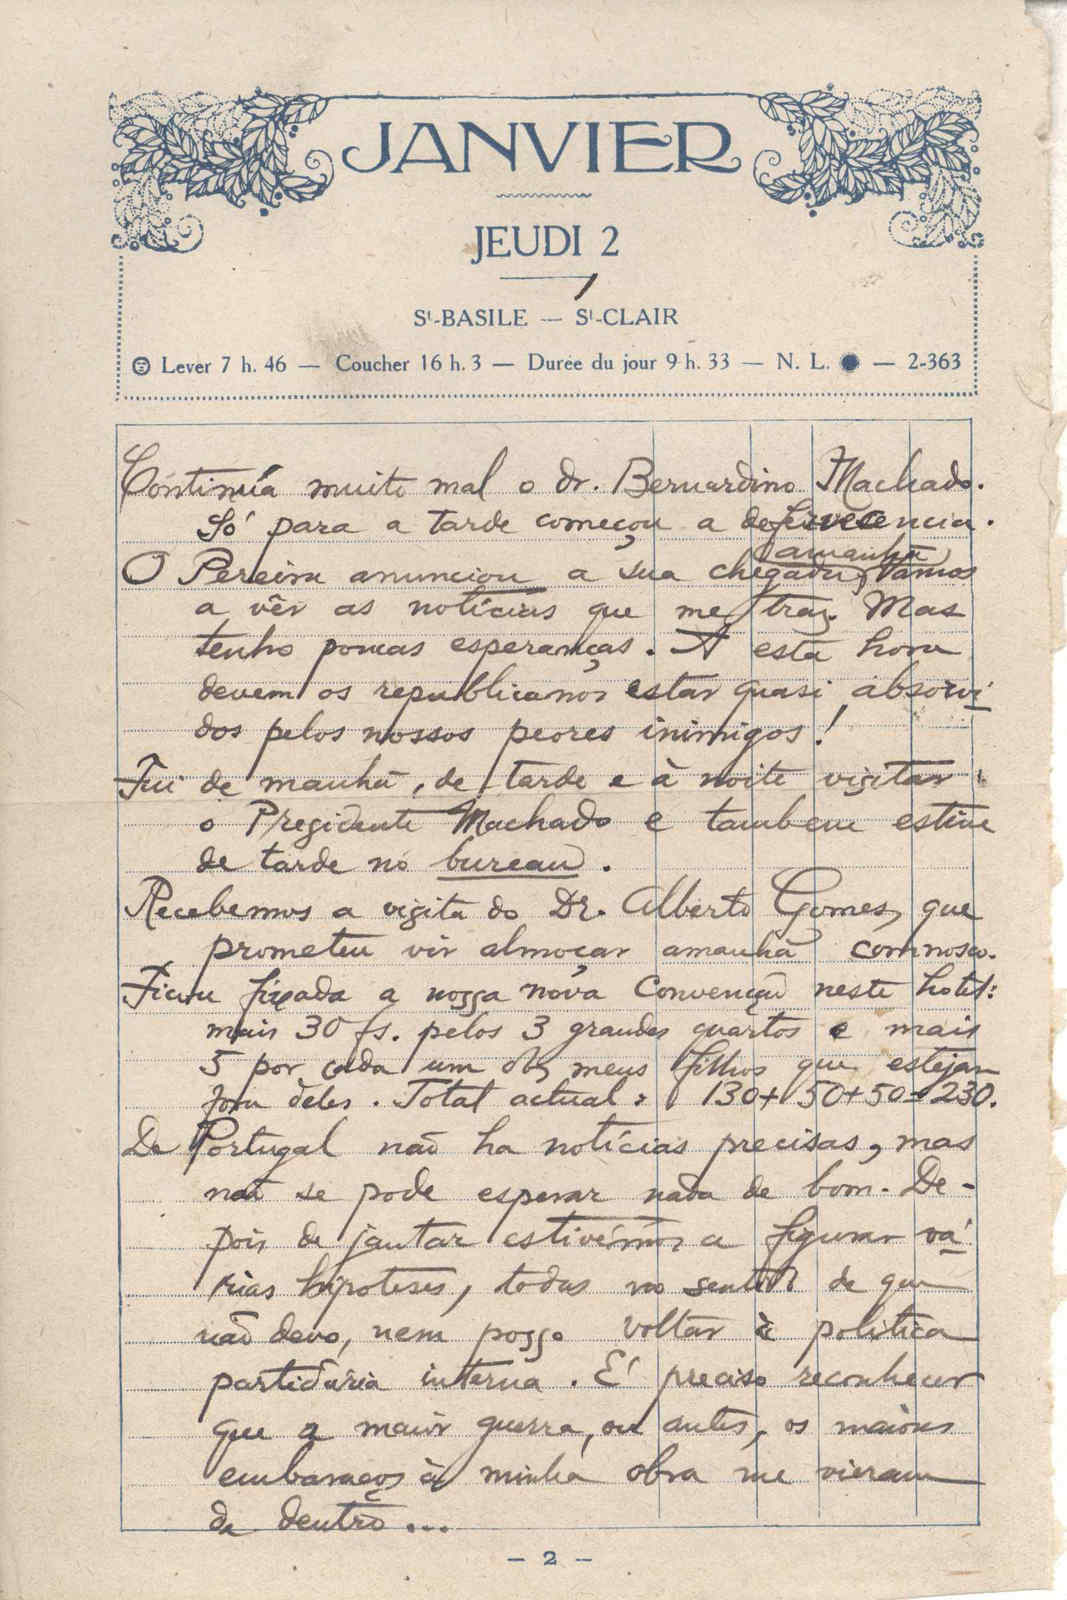 JANVIER
JEUDI 2
St-BASILE — St-CLAIR
Lever 7 h. 46 — Coucher 16 h. 3 — Durée du jour 9 h. 33 — N. L. ● — 2-363
Continúa muito mal o dr. Bernardino Machado.
Só para a tarde começou a defervecencia.
amanhã
O Pereira anunciou a sua chegada, Vamos
a vêr as notícias que me traz. Mas
tenho poucas esperanças. A esta hora
devem os republicanos estar quasi absorvi-
dos pelos nossos peores inimigos!
Fui de manhã, de tarde e à noite visitar
o Presidente Machado e tambem estive
de tarde no bureau.
Recebemos a visita do Dr. Alberto Gomes, que
prometeu vir almoçar amanhã comnosco.
Ficou fixada a nossa nova Convenção neste hotel:
mais 30 fs. pelos 3 grandes quartos e mais
5 por cada um dos meus filhos que estejam
fora deles. Total actual: 130+50+50=230.
De Portugal não ha notícias precisas, mas
não se pode esperar nada de bom. De-
pois de jantar estivémos a figurar vá-
rias hipoteses, todas no sentido de que
não devo, nem posso voltar à politica
partidária interna. É preciso reconhecer
que a maior guerra, ou antes, os maiores
embaraços à minha obra me vieram
de dentro...
— 2 —